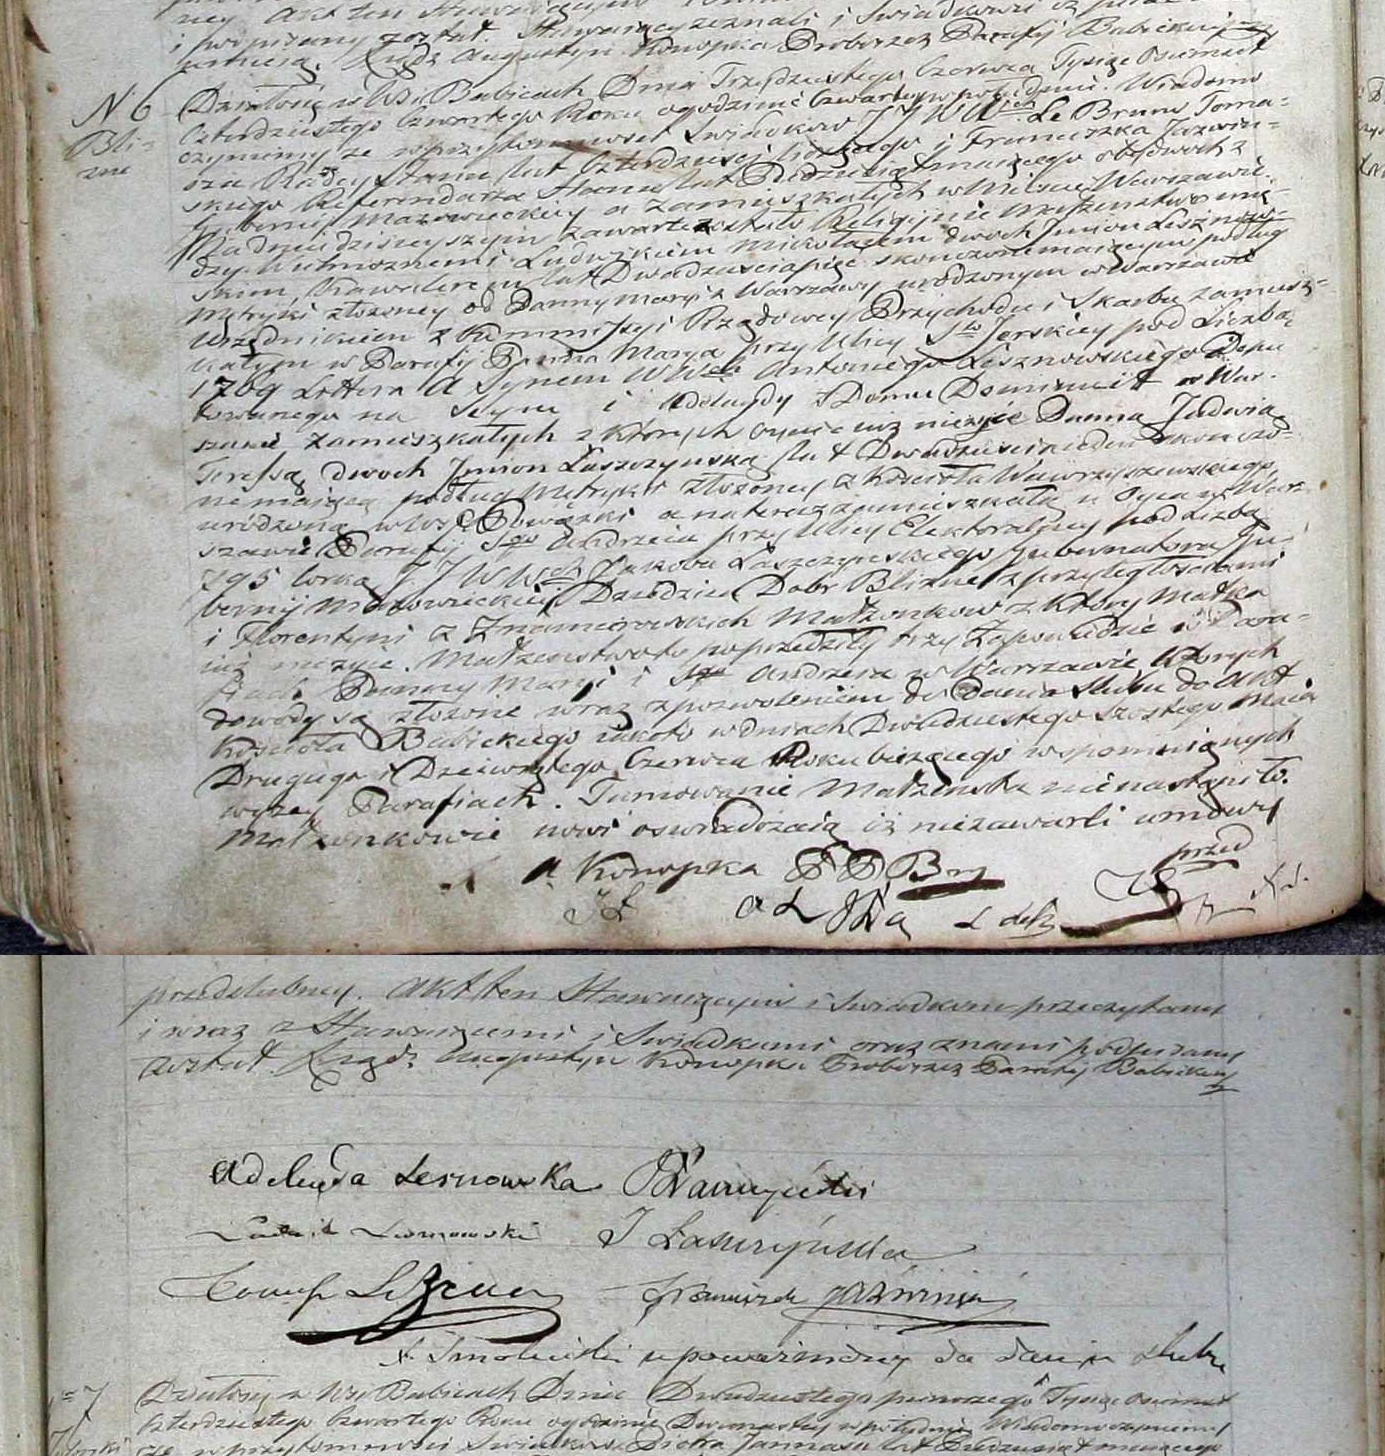 ney Akt ten Stawaiącym
i podpisany został. Stawaiący zeznali i Swiadkowie iż pisać
umieią. Xiądz Augustyn Konopka Proboszcz Parafii Babickiey
N 6
Bli=
zne
Działo się w Wsi Babicach Dnia Trzydziestego Czerwca Tysiąc Osiemset
Czterdziestego Czwartego Roku o godzinie Czwartey po południu. Wiadomo
czyniemy że w przytomności Swiadków JJWW Le Brun Toma=
sza Radcy Stanu lat Czterdzieści liczącego i Franciszka Jazwiń=
skiego Referendarza Stanu lat Piędziesiąt maiącego obydwoch z
Gubernij Mazowieckiey a zamieszkałych w Mieście Warszawie.
Na dniu dzisieyszym zawarte zostało Religijnie Małżeństwo mię=
dzy Wielmożnemi Ludwikiem Mikołajem dwoch Imion Lesznow=
skim, Kawalerem lat Dwadzieściapięć skonczone maiącym podług
Metryki złożoney od Panny Maryi z Warszawy urodzonym w Warszawie
Urzędnikiem z Kommissyi Rządowey Przychodu i Skarbu zamiesz=
kałym w Parafij Panna Marya przy Ulicy Sto Jerskiey pod Liczbą
1769 Littera A Synem WW Antoniego Lesznowskiego Depu
towanego na Seym i Adelaydy z Domu w War=
szawie zamieszkałych z których Oyciec iuż nieżyie Panną Jadwigą
Teressą dwoch Imion Łaszczyńską lat Dwadzieścia ieden skonczo=
ne maiącą podług Metryki złożoney z Kościoła Wawrzyszewskiego,
urodzoną w Wsi Powązki a na teraz zamieszkałą u Oyca w War=
szawie Parafij Sgo Andrzeia przy Ulicy Elektoralney pod Liczbą
795 Corką JJWW Jakuba Łaszczyńskiego Gubernatora Gu=
bernij Mazowieckiey Dziedzica Dobr Blizne z przyległościami
i Florentyni z Znamierowskich Małżonkow z których Matka
iuż nieżyie. Małżeństwo to poprzedziły trzy Zapowiedzie w Para=
fiach Panny Maryi i Sgo Andrzeia w Warszawie których
dowody są złożone wraz z pozwoleniem do Dania Slubu do Akt
Kościoła Babickiego iakoto w dniach Dwudziestego szostego Maia
Drugiego i Dziewiątego Czerwca Roku bieżącego wspomnionych
wyżey Parafiach. Tamowanie Małżeństwa nienastąpiło.
Małżonkowie nowi oswiadczaią iż niezawarli umowy
przed
A Konopka P P Bry
J Ł A L JŁa L
przedslubney. Akt ten Stawaiącym i Swiadkom przeczytany
i wraz z Stawaiącemi i Swiadkami oraz znami podpisany
został. Xiądz Augustyn Konopka Proboszcz Parafij Babickiey
Adelayda Lesnowska JŁaszczyński
Ludwik Lesznowski J Łaszczyńska
Tomasz LeBrun Franciszek Jaźwiński
X. Smoleński upoważniony do dania slubu
N 7
Działo się w Wsi Babicach Dnia Dwudziestego pierwszego Tysiąc osiemset
Czterdziestego Czwartego Roku o godzinie Dwunastey w południe. Wiadomo czyniemy
że w przytomności Swiadkow Piotra Jannasa lat Piędziesiąt maiącego